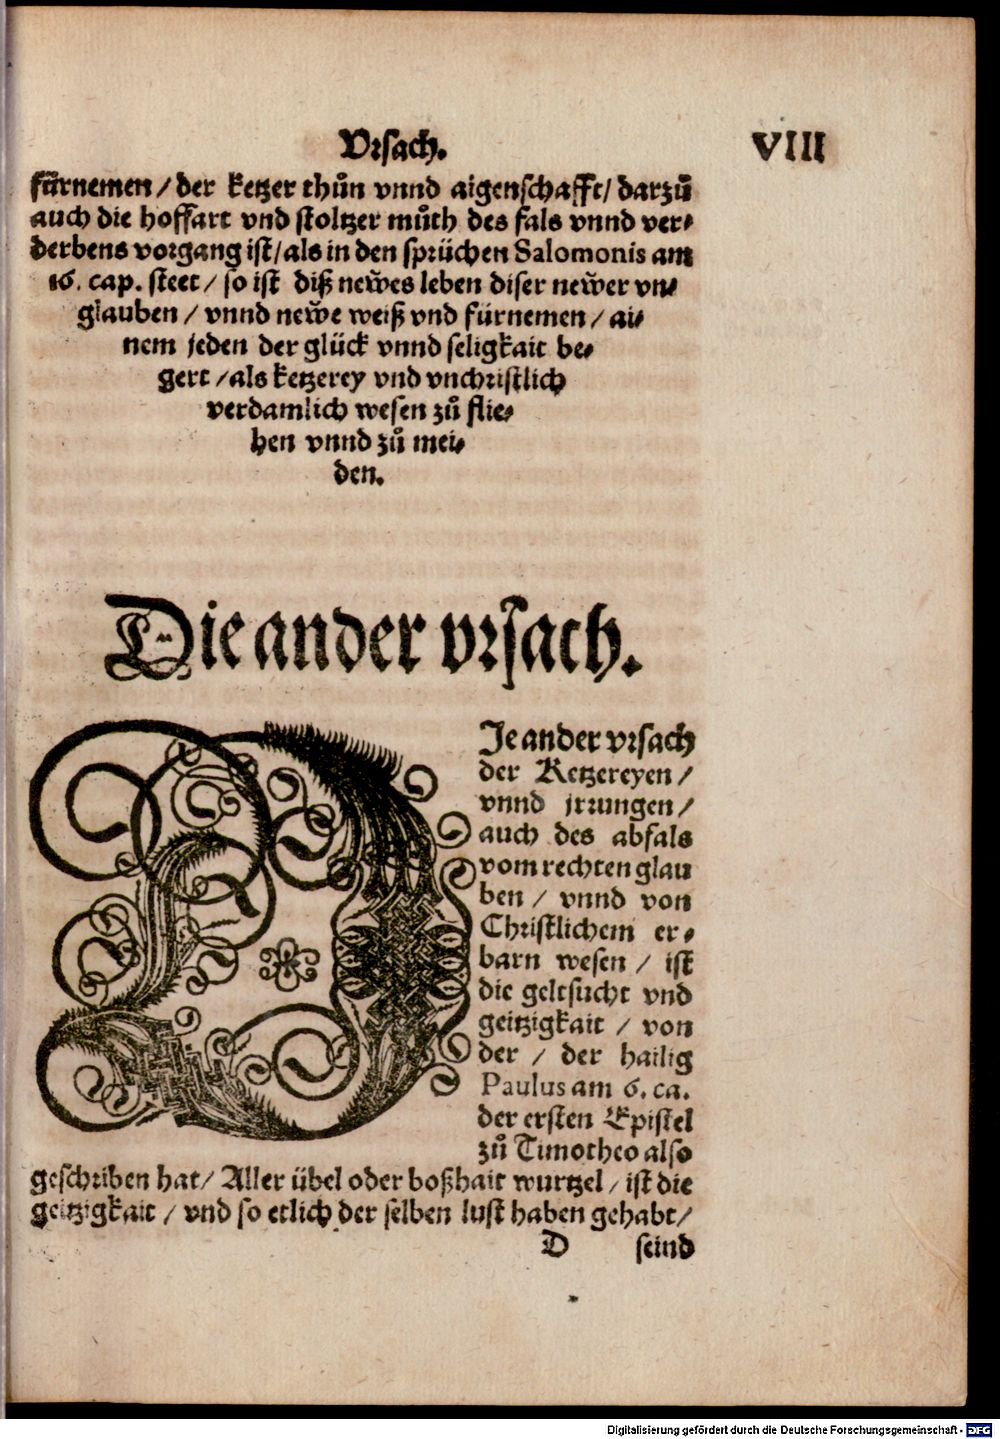 Vrsach.
VIII
fürnemen / der ketzer thůn vnnd aigenschafft / darzů
auch die hoffart vnd stoltzer můth des fals vnnd ver⸗
derbens vorgang ist / als in den sprüchen Salomonis am
16. cap. steet / so ist diß newes leben diser newer vn⸗
glauben / vnnd newe weiß vnd fürnemen / ai⸗
nem jeden der glück vnnd seligkait be⸗
gert / als ketzerey vnd vnchristlich
verdamlich wesen zů flie⸗
hen vnnd zů mei⸗
den.
Die ander vrsach.
DIe ander vrsach
der Ketzereyen /
vnnd jrrungen /
auch des abfals
vom rechten glau
ben / vnnd von
Christlichem er⸗
barn wesen / ist
die geltsucht vnd
geitzigkait / von
der / der hailig
Paulus am 6. ca.
der ersten Epistel
zů Timotheo also
geschriben hat / Aller übel oder boßhait wurtzel / ist die
geitzigkait / vnd so etlich der selben lust haben gehabt /
D seind
Digitalisierung gefördert durch die Deutsche Forschungsgemeinschaft - DFG